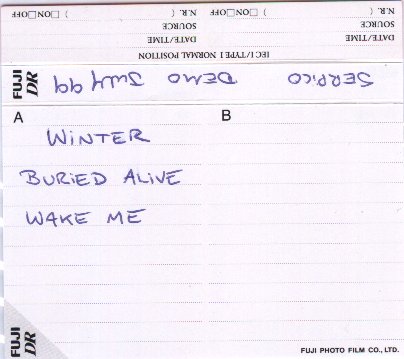 IEC I/TYPE I NORMAL POSITION
DATE/TIME DATE/TIME
SOURCE SOURCE
N.R. □ON□OFF ( ) N.R. □ON□OFF ( )
FUJI DR
SERPICO DEMO July 99
A B
WINTER
BURIED ALIVE
WAKE ME
FUJI DR
FUJI PHOTO FILM CO., LTD.